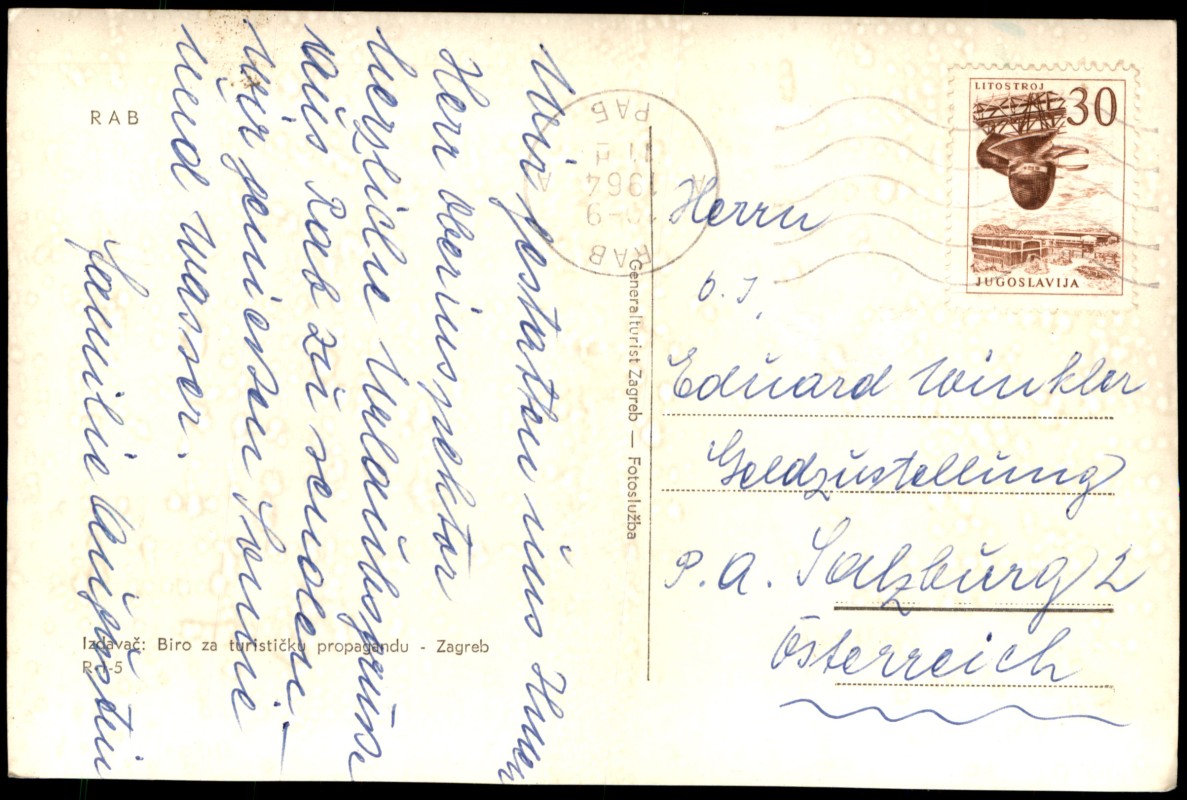 RAB
Wir gestatten uns Ihnen
Herr Oberinspektor
herzliche Urlaubsgrüsse
aus Rab zu senden. –
Wir geniessen Sonne
und Wasser.
Familie
Generalturist Zagreb — Fotoslužba
Izdavač: Biro za turističku propagandu - Zagreb
R-I-5
RAB
10-9
1964
РАБ
LITOSTROJ
30
JUGOSLAVIJA
Herrn
O. I.
Eduard Winkler
Geldzustellung
P.A. Salzburg 2
Österreich